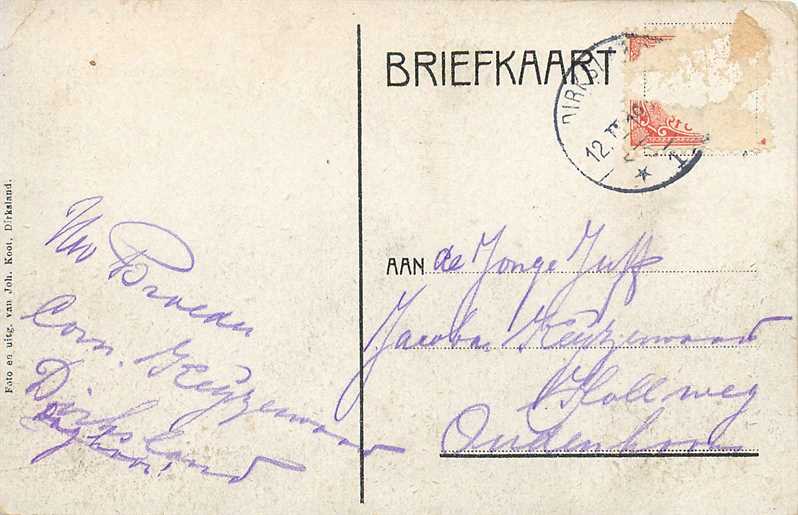 BRIEFKAART
DIRKSL
12.
Foto en uitg. van Joh. Koot, Dirksland.
Uw Broeder
Corn. Keijzerwaard
Dirksland
AAN de Jonge Juff
Jacoba Keijzerwaard
Hollweg
Oudenhoorn